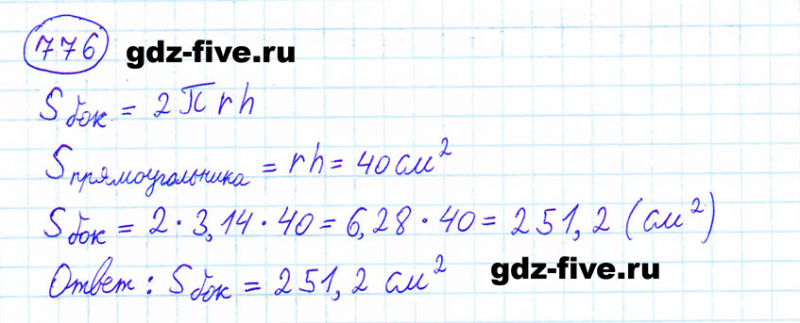 776 gdz-five.ru
Sбок = 2πrh
Sпрямоугольника = rh = 40 см²
Sбок = 2 · 3,14 · 40 = 6,28 · 40 = 251,2 (см²)
Ответ: Sбок = 251,2 см² gdz-five.ru